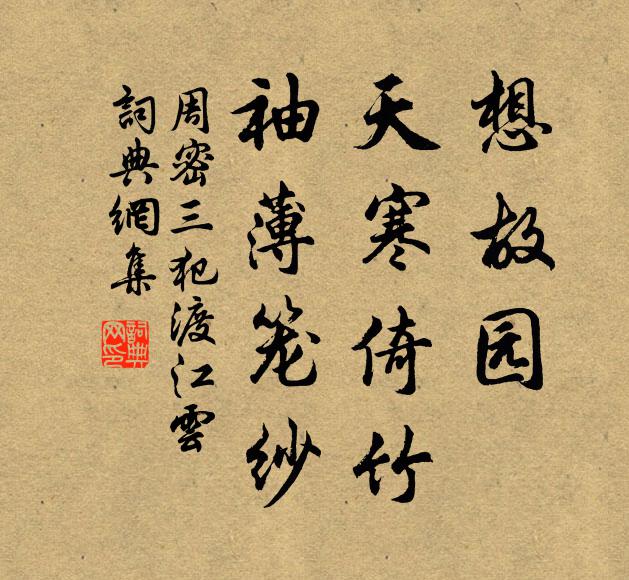 想故园
天寒倚竹
袖薄笼纱
周密三犯渡江雲
詞典網集
詞典网印